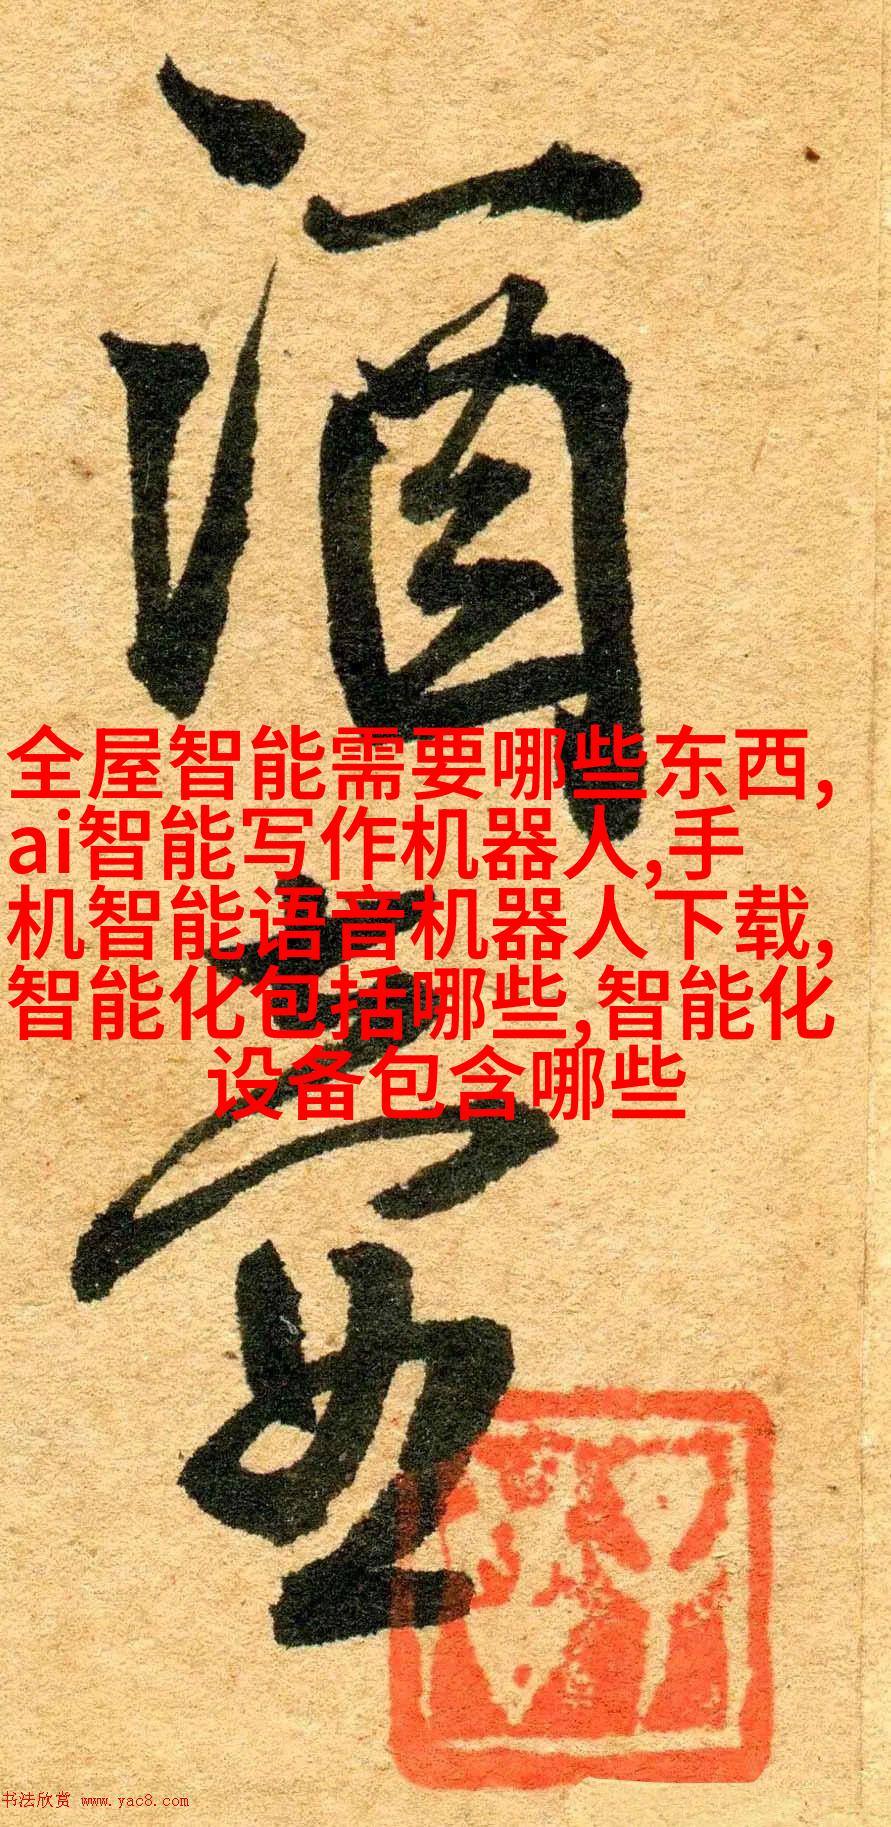 酒
全屋智能需要哪些东西,
ai智能写作机器人,手
机智能语音机器人下载,
智能化包括哪些,智能化
设备包含哪些
书法欣赏 www.yac8.com